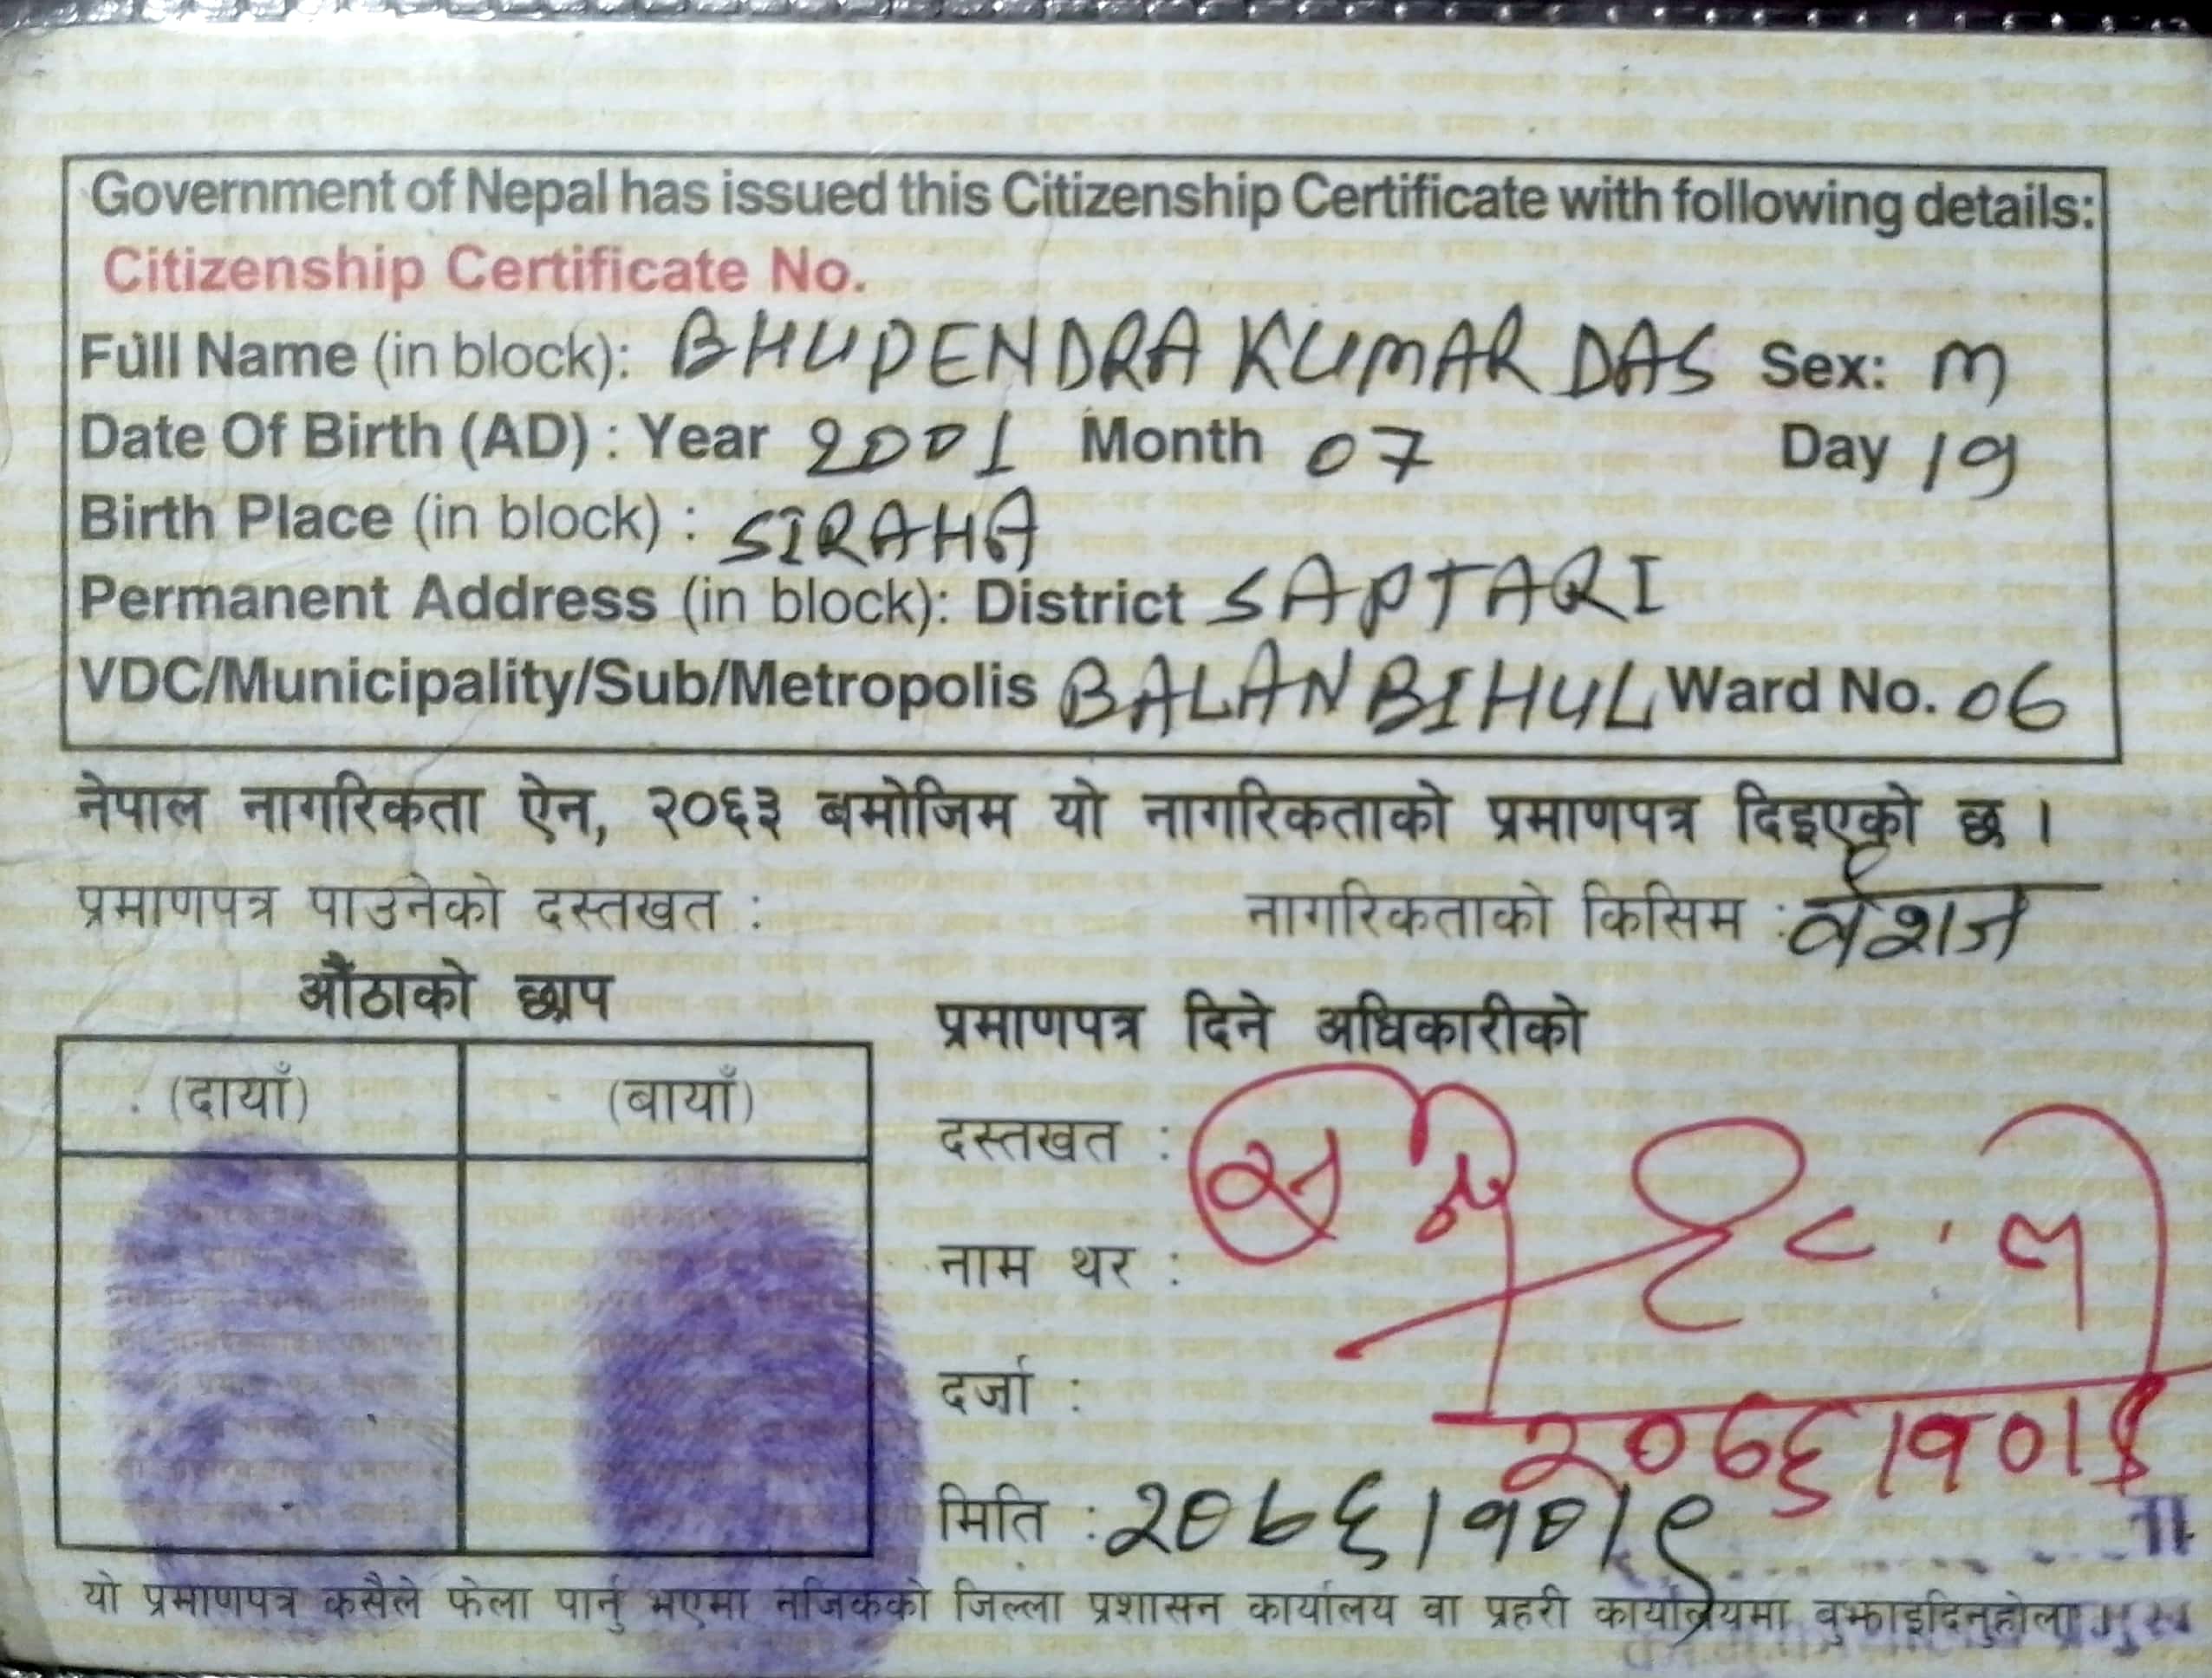 Government of Nepal has issued this Citizenship Certificate with following details:
Citizenship Certificate No.
Full Name (in block): BHUPENDRA KUMAR DAS Sex: M
Date Of Birth (AD) : Year 2001 Month 07 Day 19
Birth Place (in block) : SIRAHA
Permanent Address (in block): District SAPTARI
VDC/Municipality/Sub/Metropolis BALAN BIHUL Ward No. 06
नेपाल नागरिकता ऐन, २०६३ बमोजिम यो नागरिकताको प्रमाणपत्र दिइएको छ ।
प्रमाणपत्र पाउनेको दस्तखत : नागरिकताको किसिम : वंशज
औंठाको छाप
प्रमाणपत्र दिने अधिकारीको
(दायाँ) (बायाँ)
दस्तखत :
नाम थर :
दर्जा :
२०७६।१०।
मिति : २०७६।१०।९
यो प्रमाणपत्र कसैले फेला पार्नु भएमा नजिकको जिल्ला प्रशासन कार्यालय वा प्रहरी कार्यालयमा बुझाइदिनुहोला